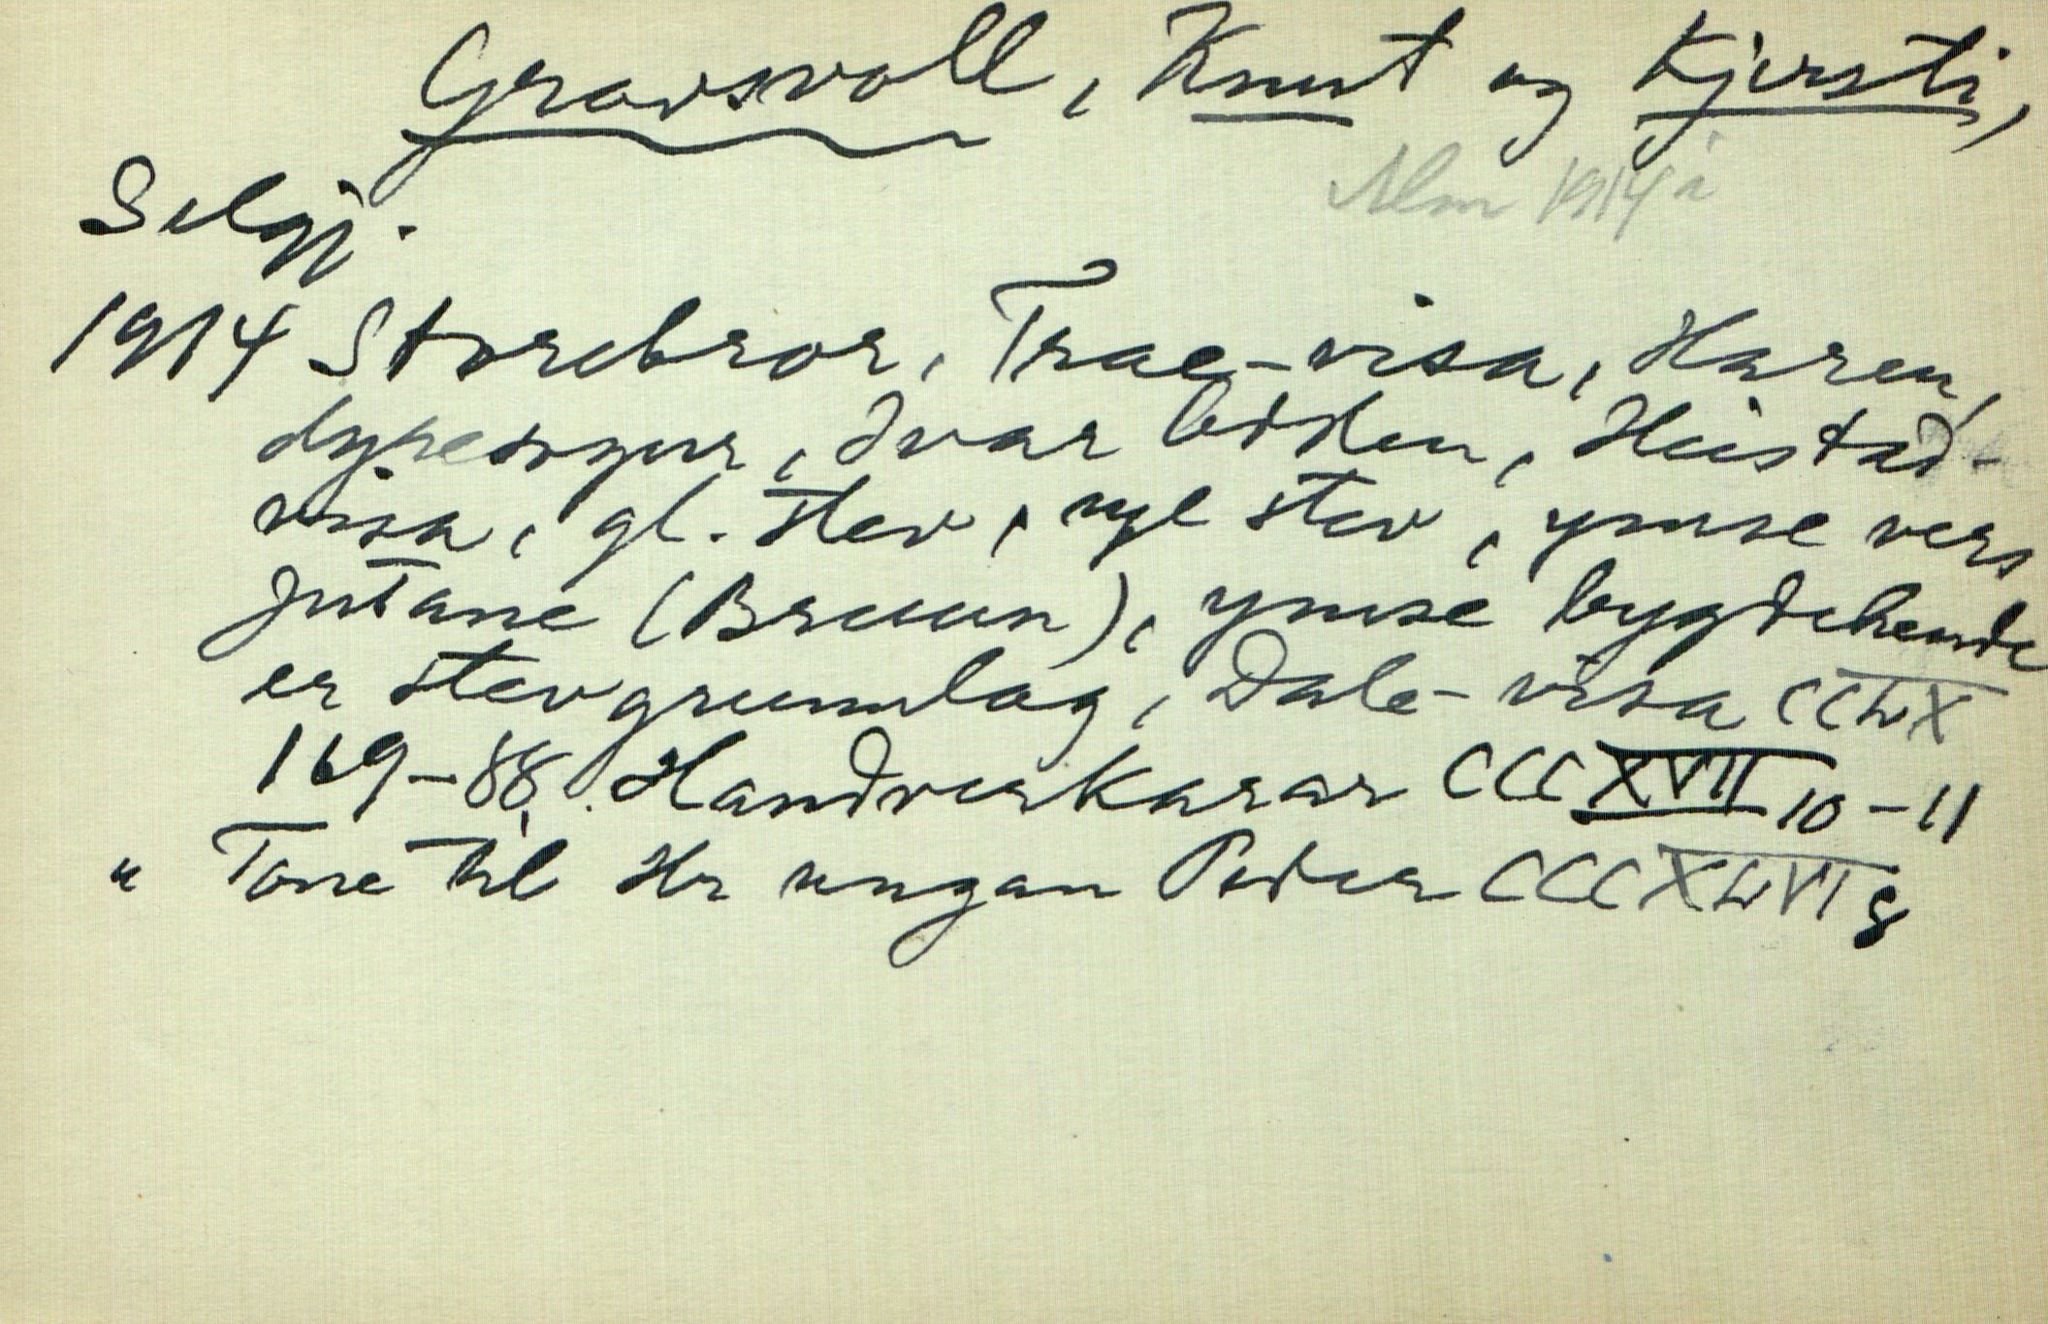 Gravsvoll, Knut og Kjersti,
Alm 1914 i
Selgj.
1914 Storebror, Trae-visa, Haren,
dyresogur, Ivar Odden, Heistad-
visa, gl. stev, nye stev, ymse vers
jutane (Bruun), ymse bygdehende
er stevgrunnlag, Dale-visa CCLXX
169-88. Handverkarar CCCXVII 10-11
" Tone til Hr ungan Peder CCCXLVI 8